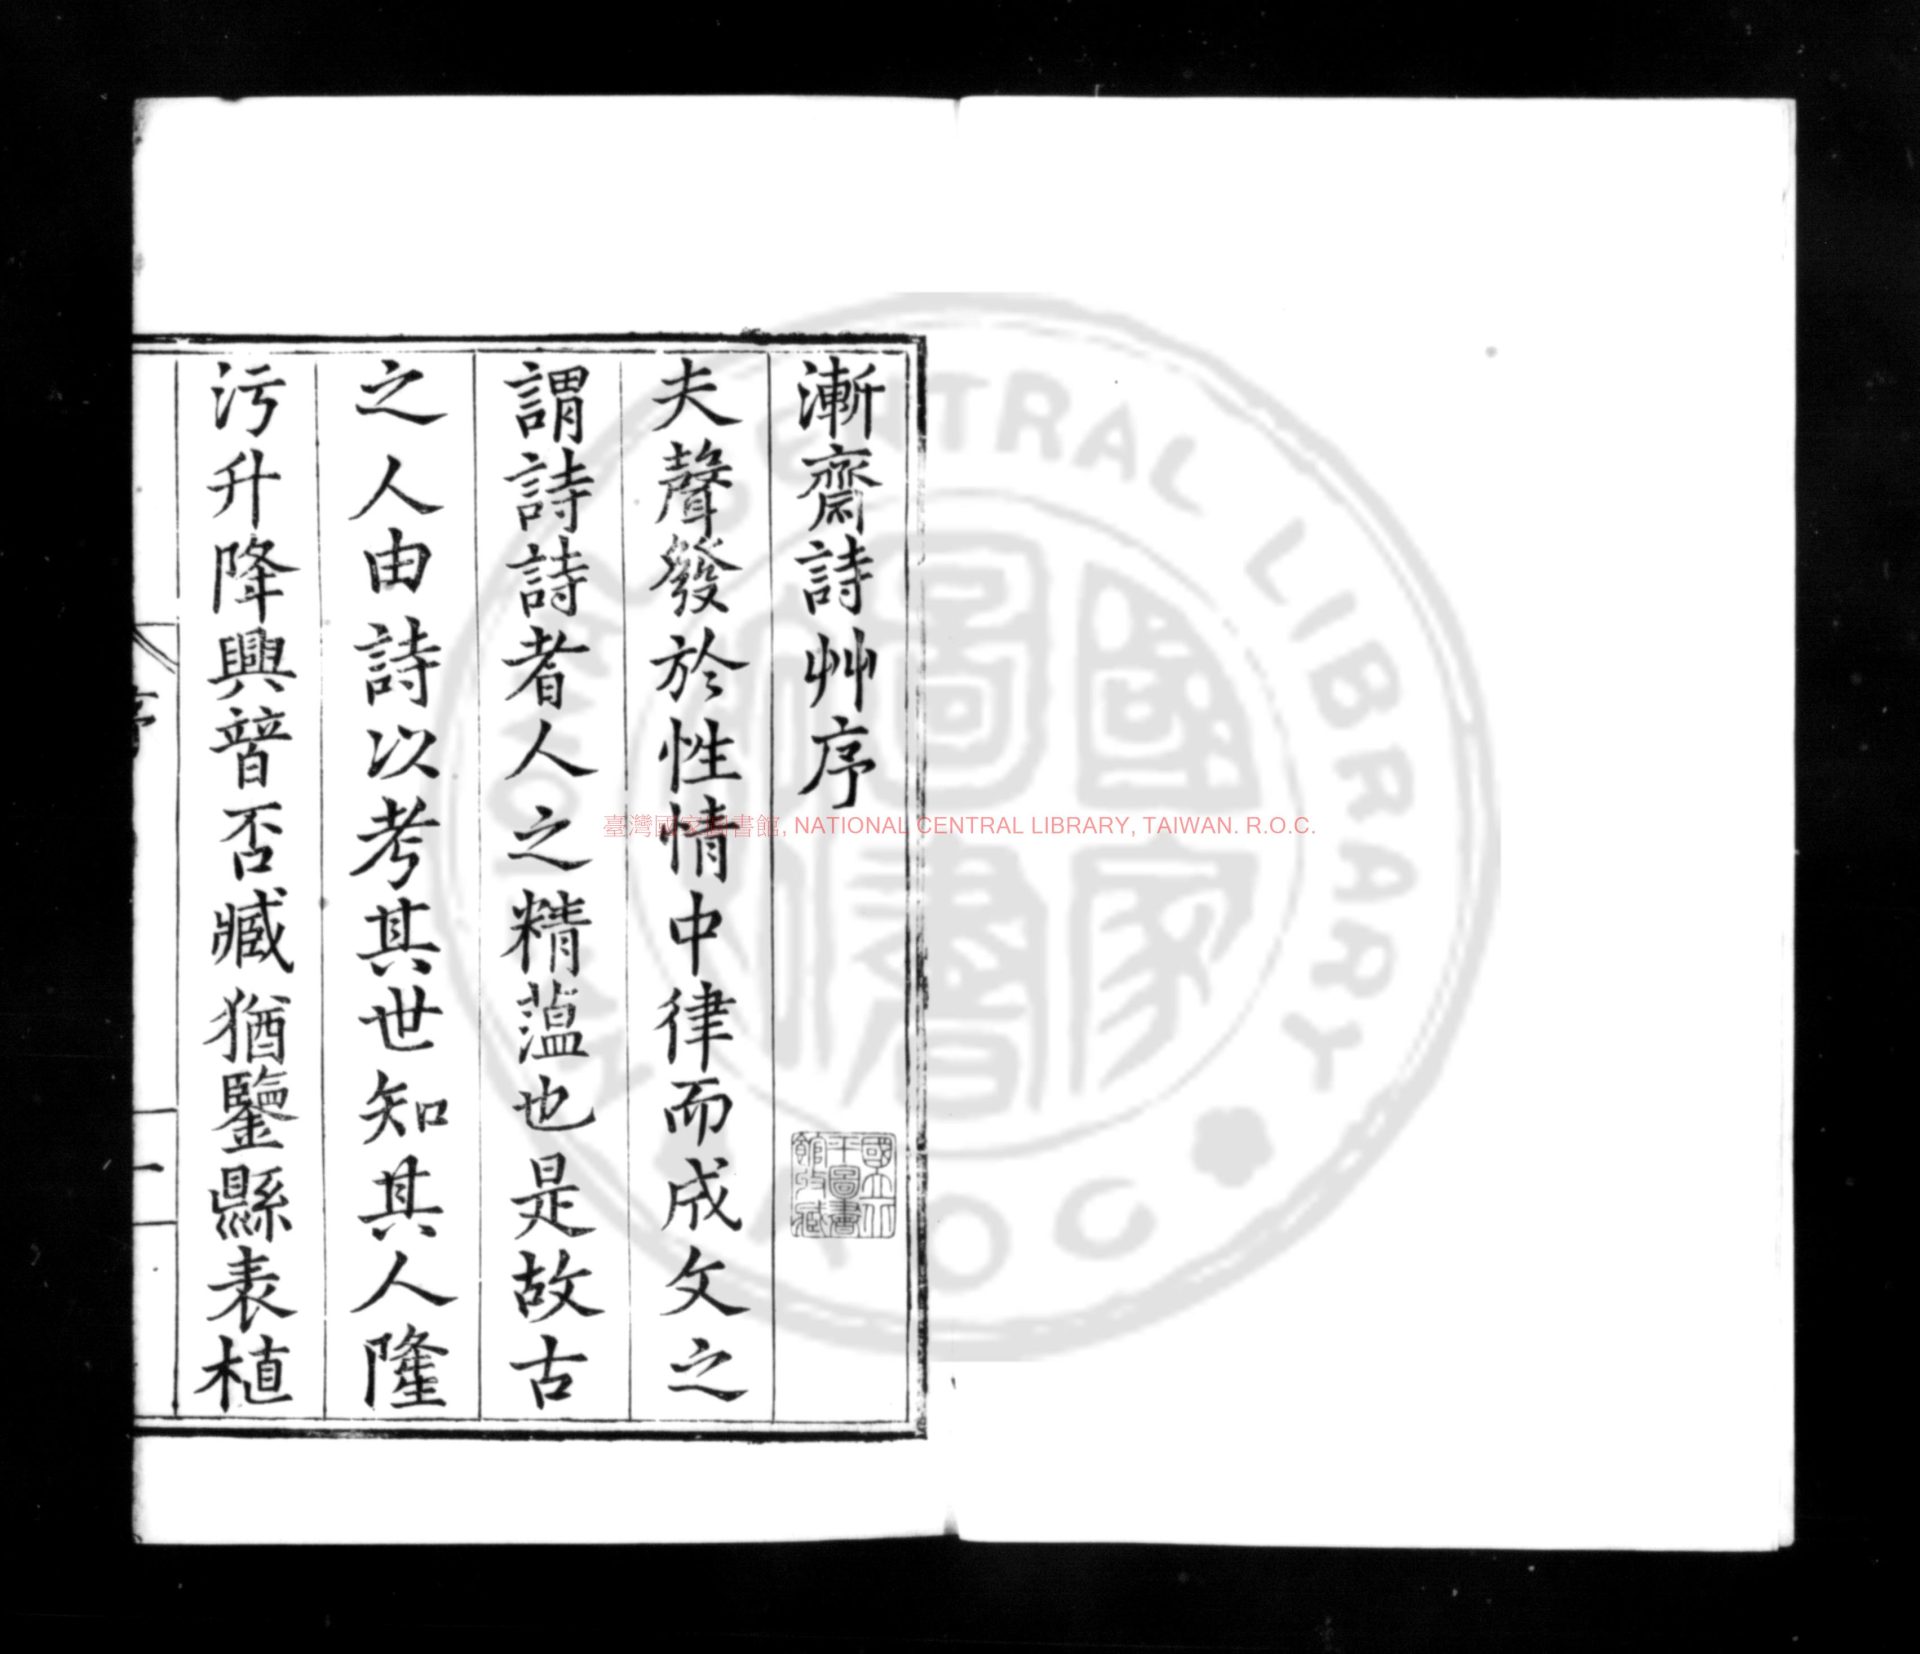 漸齋詩艸序
夫聲發於性情中律而成文之
謂詩詩者人之精薀也是故古
之人由詩以考其世知其人隆
污升降興暜否臧猶鑒縣表植
序
一
國立中
央圖書
館收藏
臺灣國家圖書館, NATIONAL CENTRAL LIBRARY, TAIWAN. R.O.C.
NATIONAL CENTRAL LIBRARY R.O.C.
國家圖書